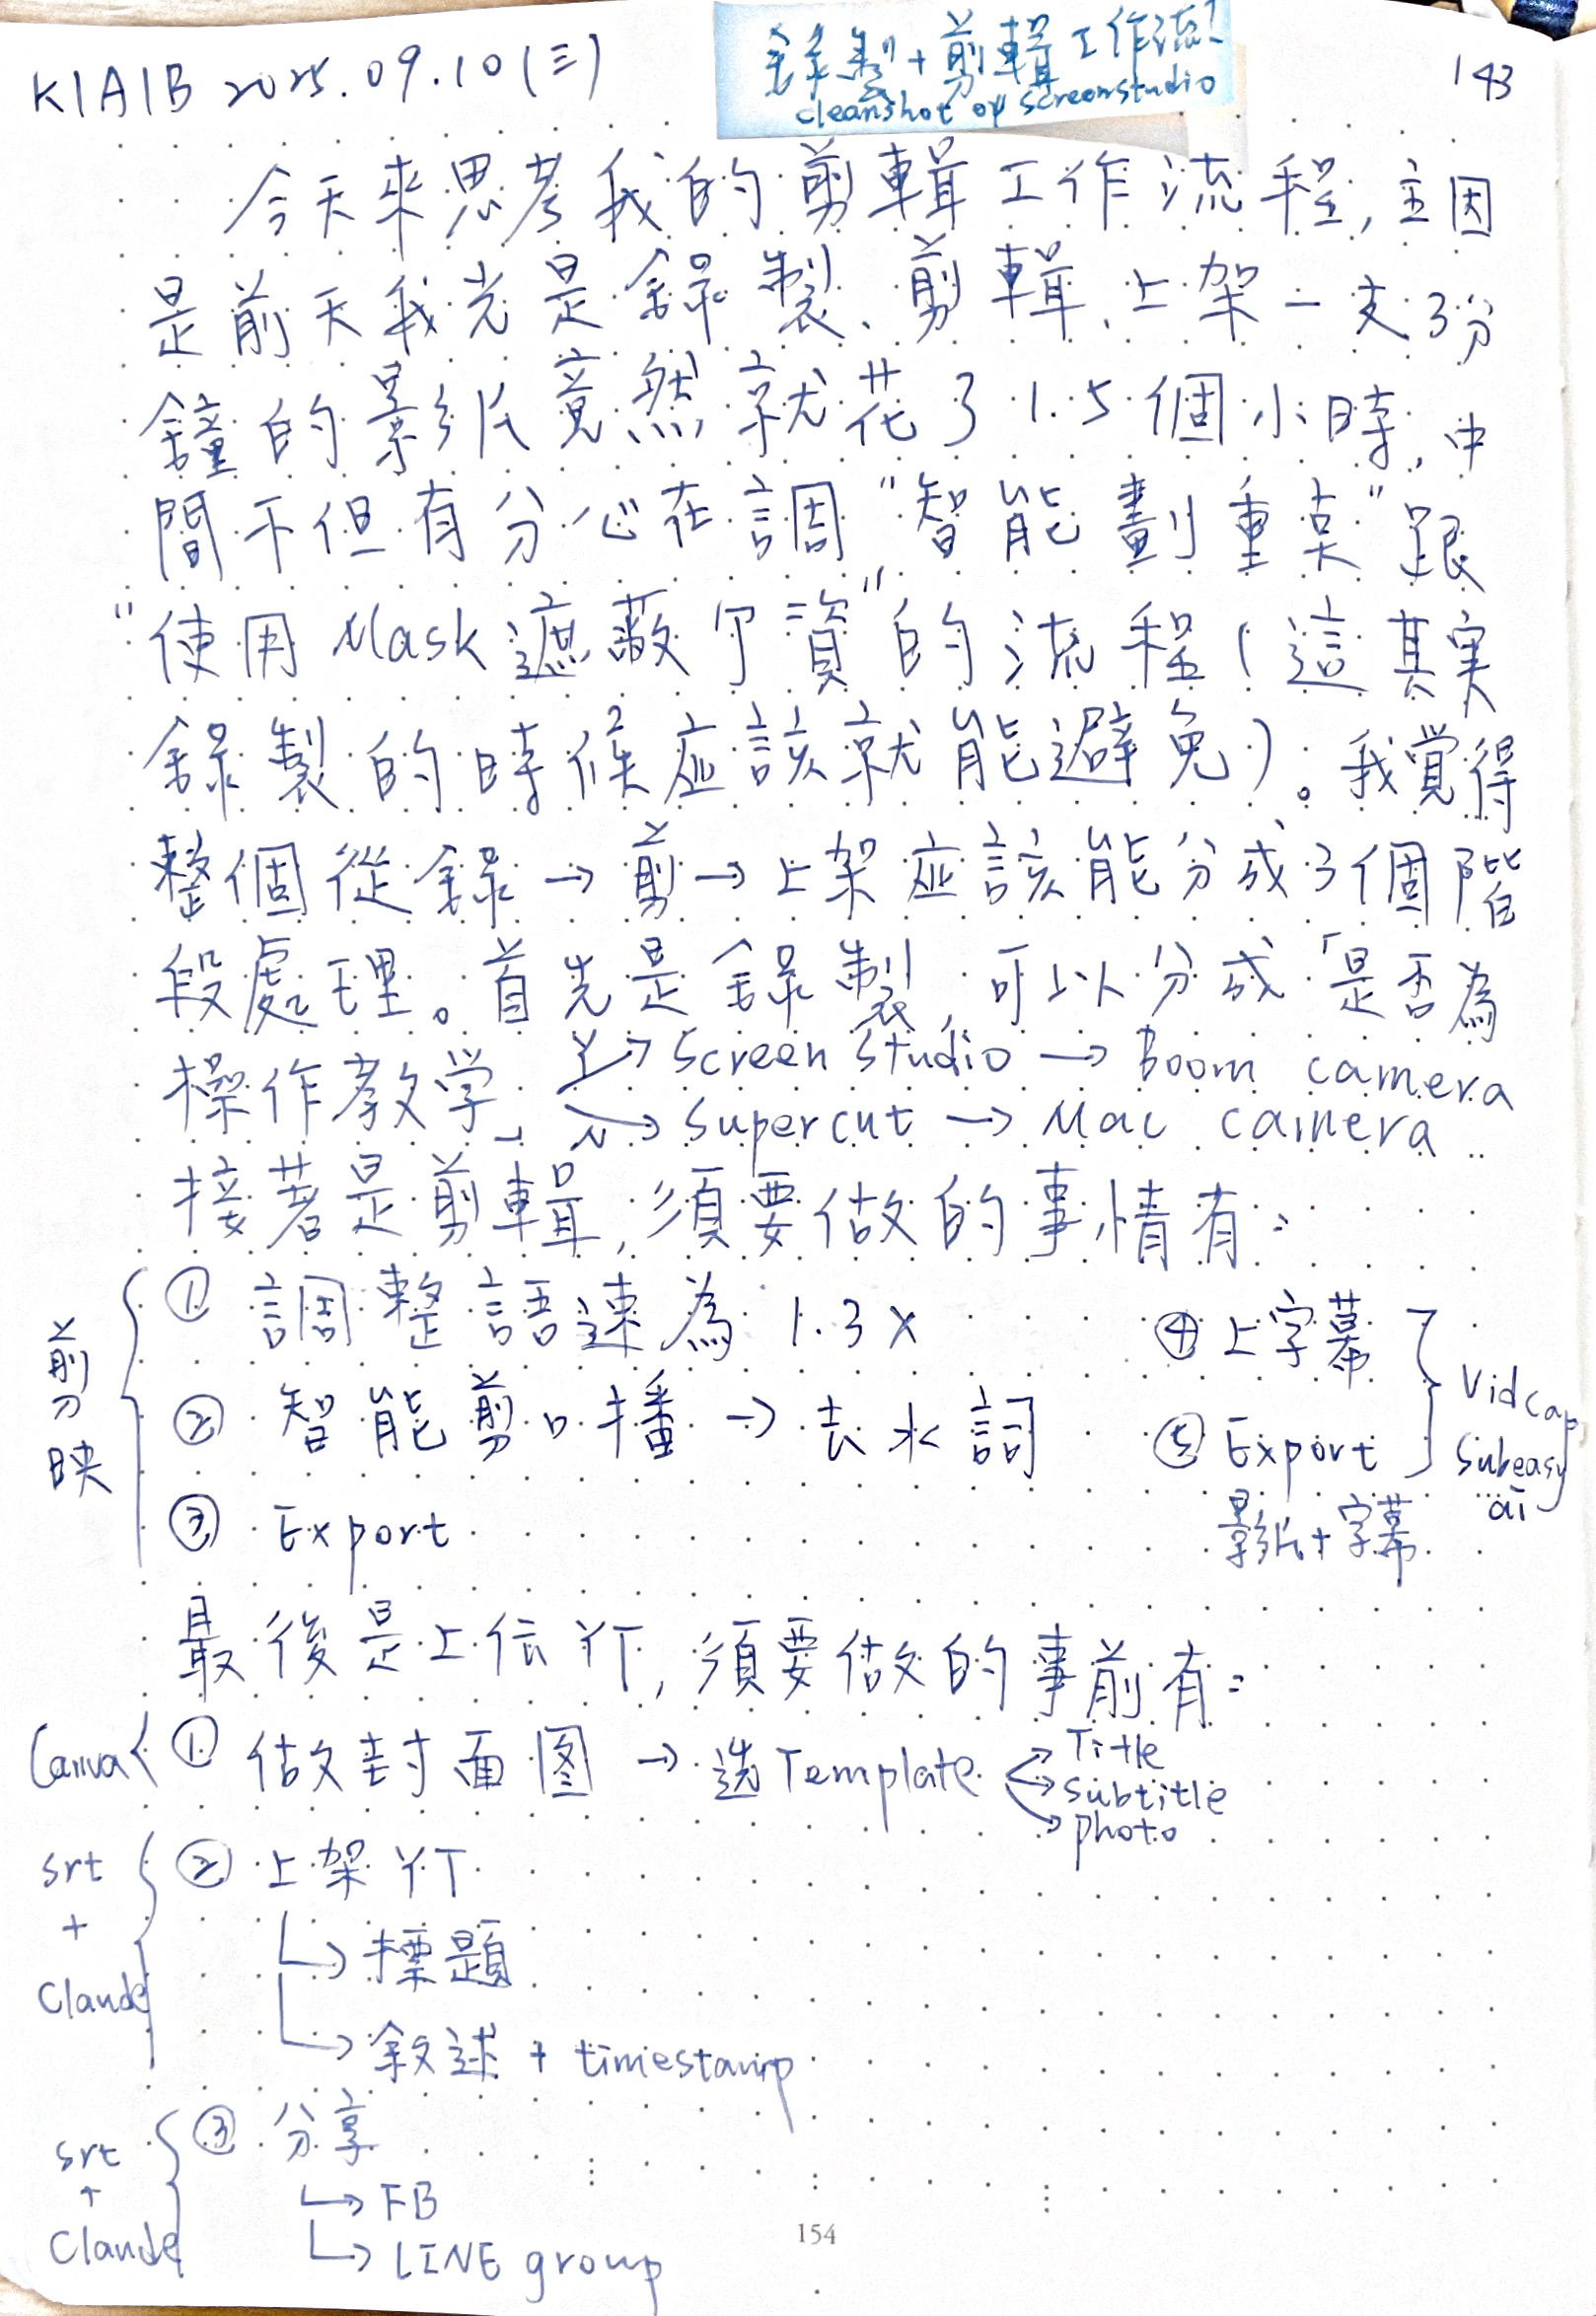 K1A1B 2025.09.10(三)
錄製+剪輯工作流!
cleanshot or screenstudio
143
今天來思考我的剪輯工作流程,主因
是前天我光是錄製、剪輯、上架一支3分
鐘的影片竟然就花了1.5個小時,中
間不但有分心在調"智能劃重点"跟
"使用Mask遮蔽个資"的流程(這其実
錄製的時候应該就能避免)。我覚得
整個從錄→剪→上架应該能分成3個階
段處理。首先是錄製,可以分成「是否為
操作教学」
Y→Screen Studio→Boom camera
N→Supercut→Mac camera
接著是剪輯,須要做的事情有:
剪映
① 調整語速為1.3x
② 智能剪口播→去水詞
③ Export
④ 上字幕
⑤ Export
影片+字幕
Vidcap
Subeasy
ai
最後是上伝YT,須要做的事前有:
Canva
① 做封面图→选Template
Title
Subtitle
photo
srt
+
Claude
② 上架YT
→標題
→敘述+timestamp
srt
+
Claude
③ 分享
→FB
→LINE group
154